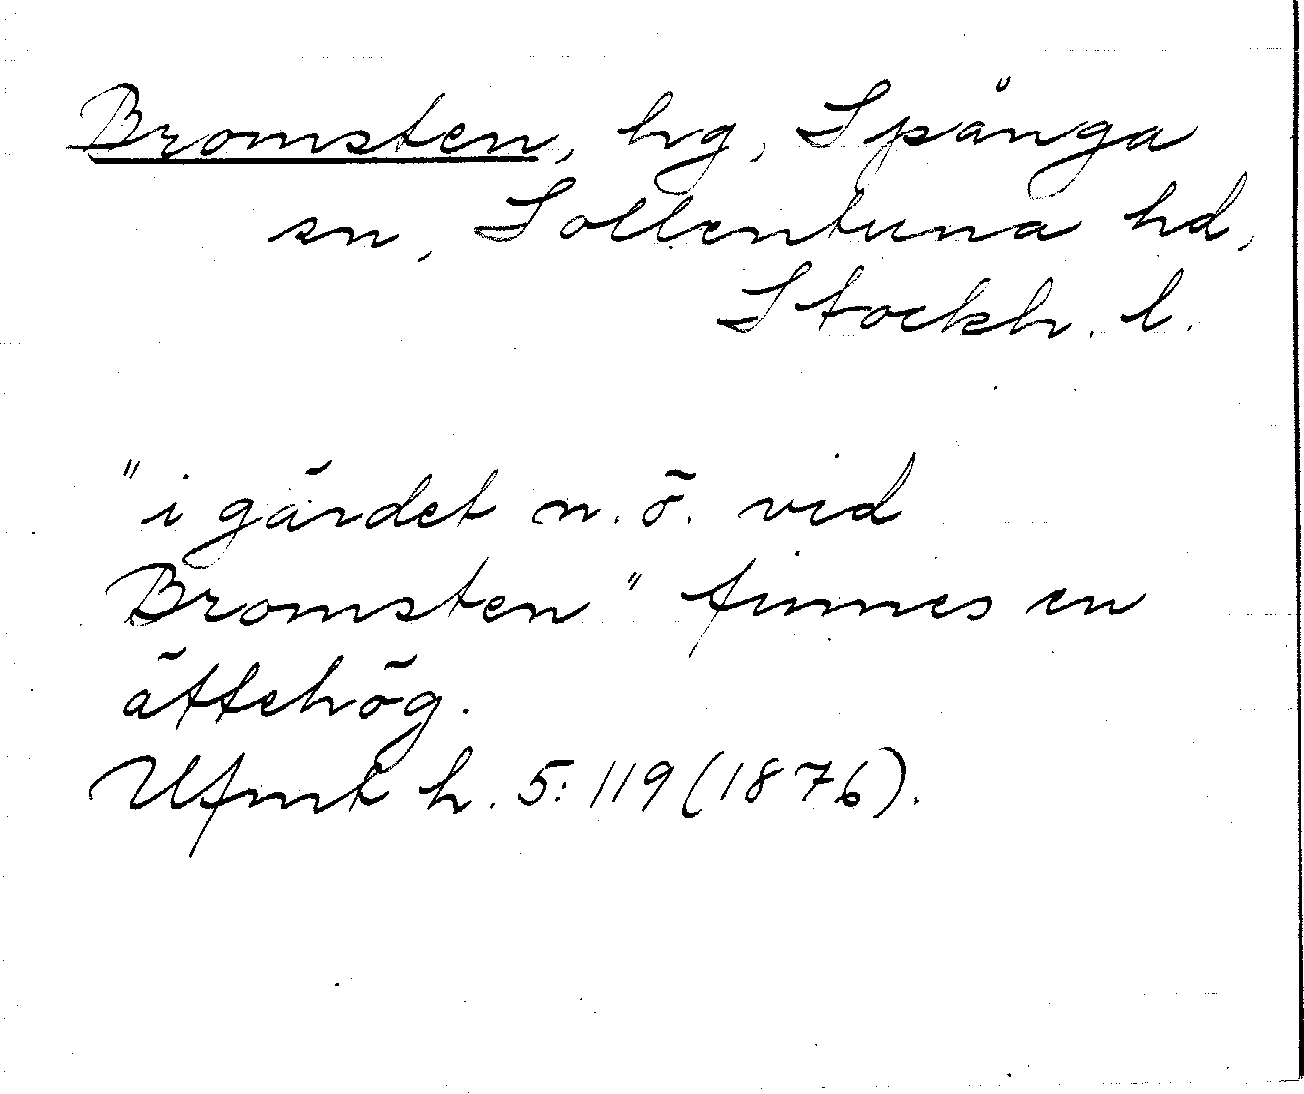 Bromsten, hg, Spånga
sn, Sollentuna hd,
Stockh. l.
"i gärdet n.ö. vid
Bromsten" finnes en
ättehög.
Ufmt h. 5:119 (1876).